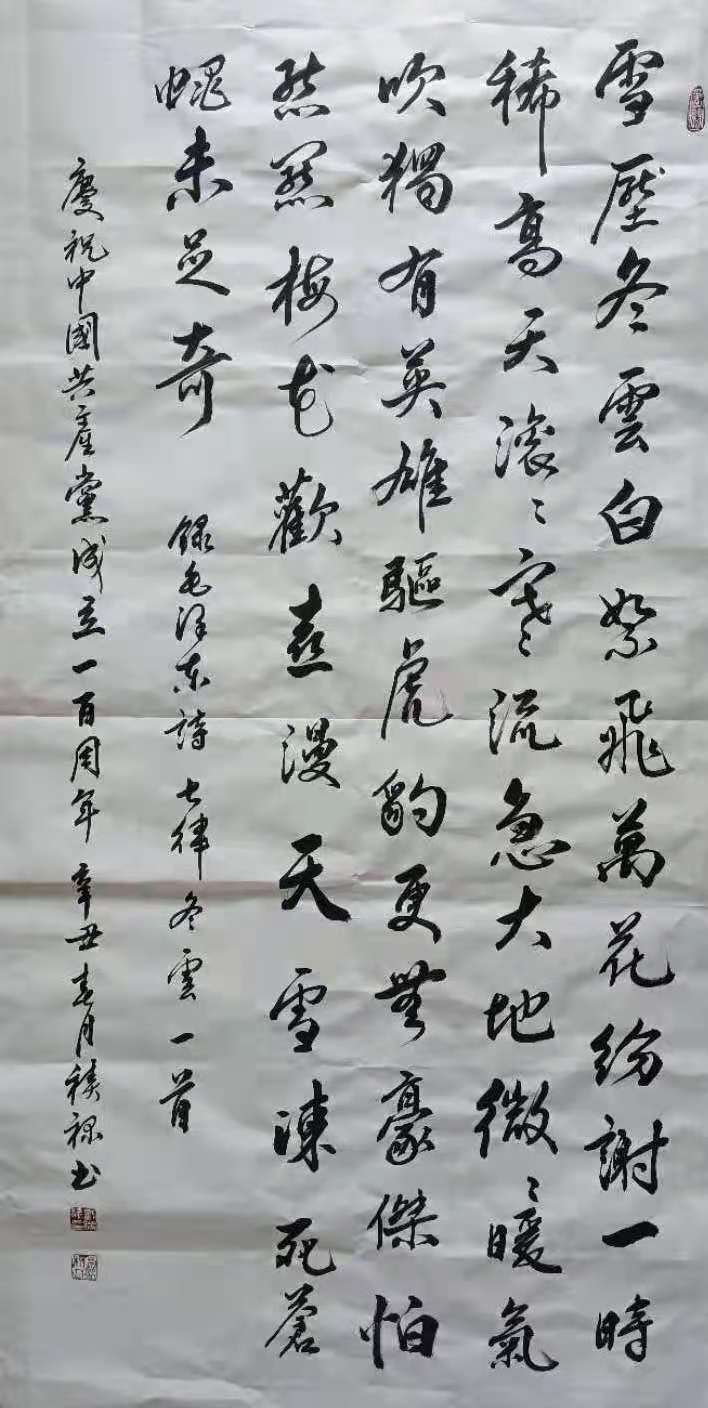 雪壓冬雲白絮飛萬花紛謝一時
稀高天滾〻寒流急大地微〻暖氣
吹獨有英雄驅虎豹更無豪傑怕
熊羆梅花歡喜漫天雪凍死蒼
蠅未足奇 錄毛澤東詩 七律 冬雲一首
慶祝中國共產黨成立一百周年 辛丑春月 书